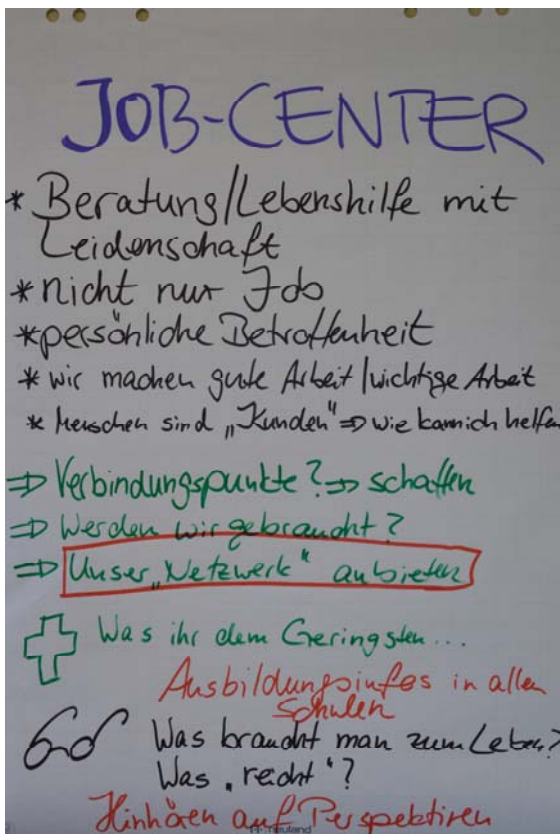 JOB-CENTER
* Beratung/Lebenshilfe mit
Leidenschaft
* nicht nur Job
* persönliche Betroffenheit
* wir machen gute Arbeit/wichtige Arbeit
* Menschen sind „Kunden" ⇒ wie kann ich helfen
⇒ Verbindungspunkte? ⇒ schaffen
⇒ Werden wir gebraucht?
⇒ Unser „Netzwerk" anbieten
Was ihr dem Geringsten...
Ausbildungsinfos in allen
Schulen
Was braucht man zum Leben?
Was „reicht"?
Hinhören auf Perspektiven
Neuland